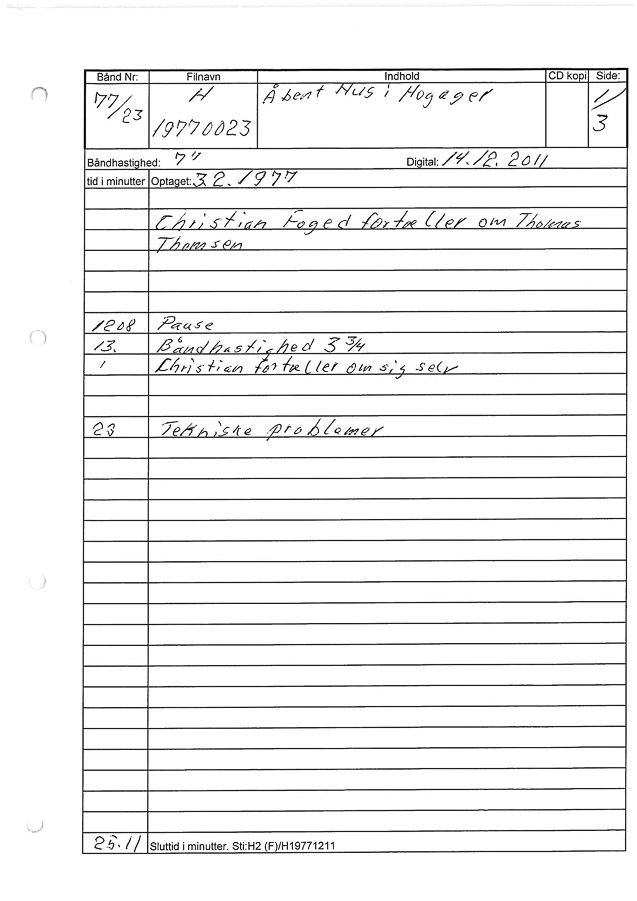 Bånd Nr: Filnavn Indhold CD kopi Side:
77/23 H Åbent Hus i Hogager 1/3
19770023
Båndhastighed: 7" Digital: 14.12.2011
tid i minutter Optaget: 3.2.1977
Christian Foged fortæller om Thomas
Thomsen
1208 Pause
13. Båndhastighed 3 3/4
' Christian fortæller om sig selv
23 Tekniske problemer
25.11 Sluttid i minutter. Sti:H2 (F)/H19771211